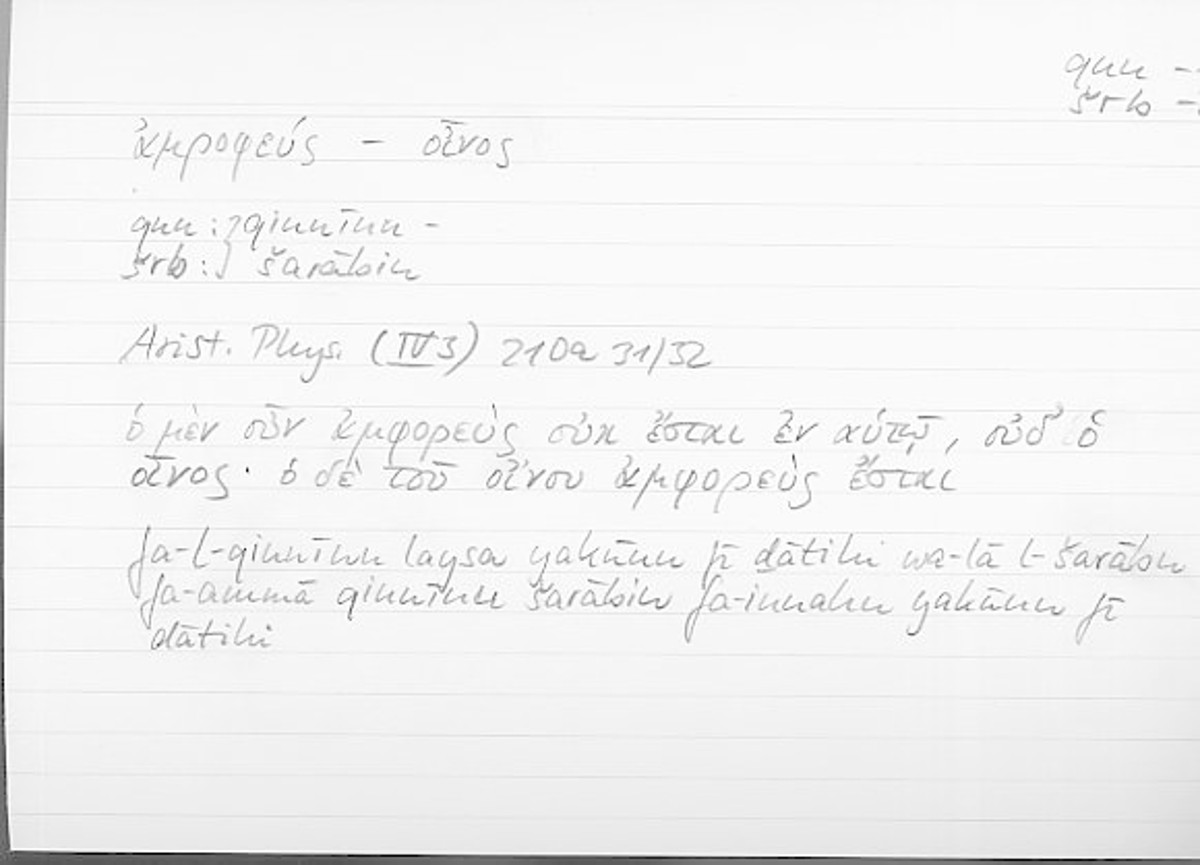 qnn -
šrb -
ἀμροφεύς - οἶνος
qnn : qinnīnu -
šrb : šarābin
Arist. Phys. (IV 3) 210a 31/32
ὁ μὲν οὖν ἀμφορεὺς οὐκ ἔσται ἐν αὑτῷ, οὐδ' ὁ
οἶνος · ὁ δὲ τοῦ οἴνου ἀμφορεὺς ἔσται
fa-l-qinnīnu laysa yakūnu fī ḏātihi wa-lā l-šarābu
fa-ammā qinnīnu šarābin fa-innahu yakūnu fī
ḏātihi